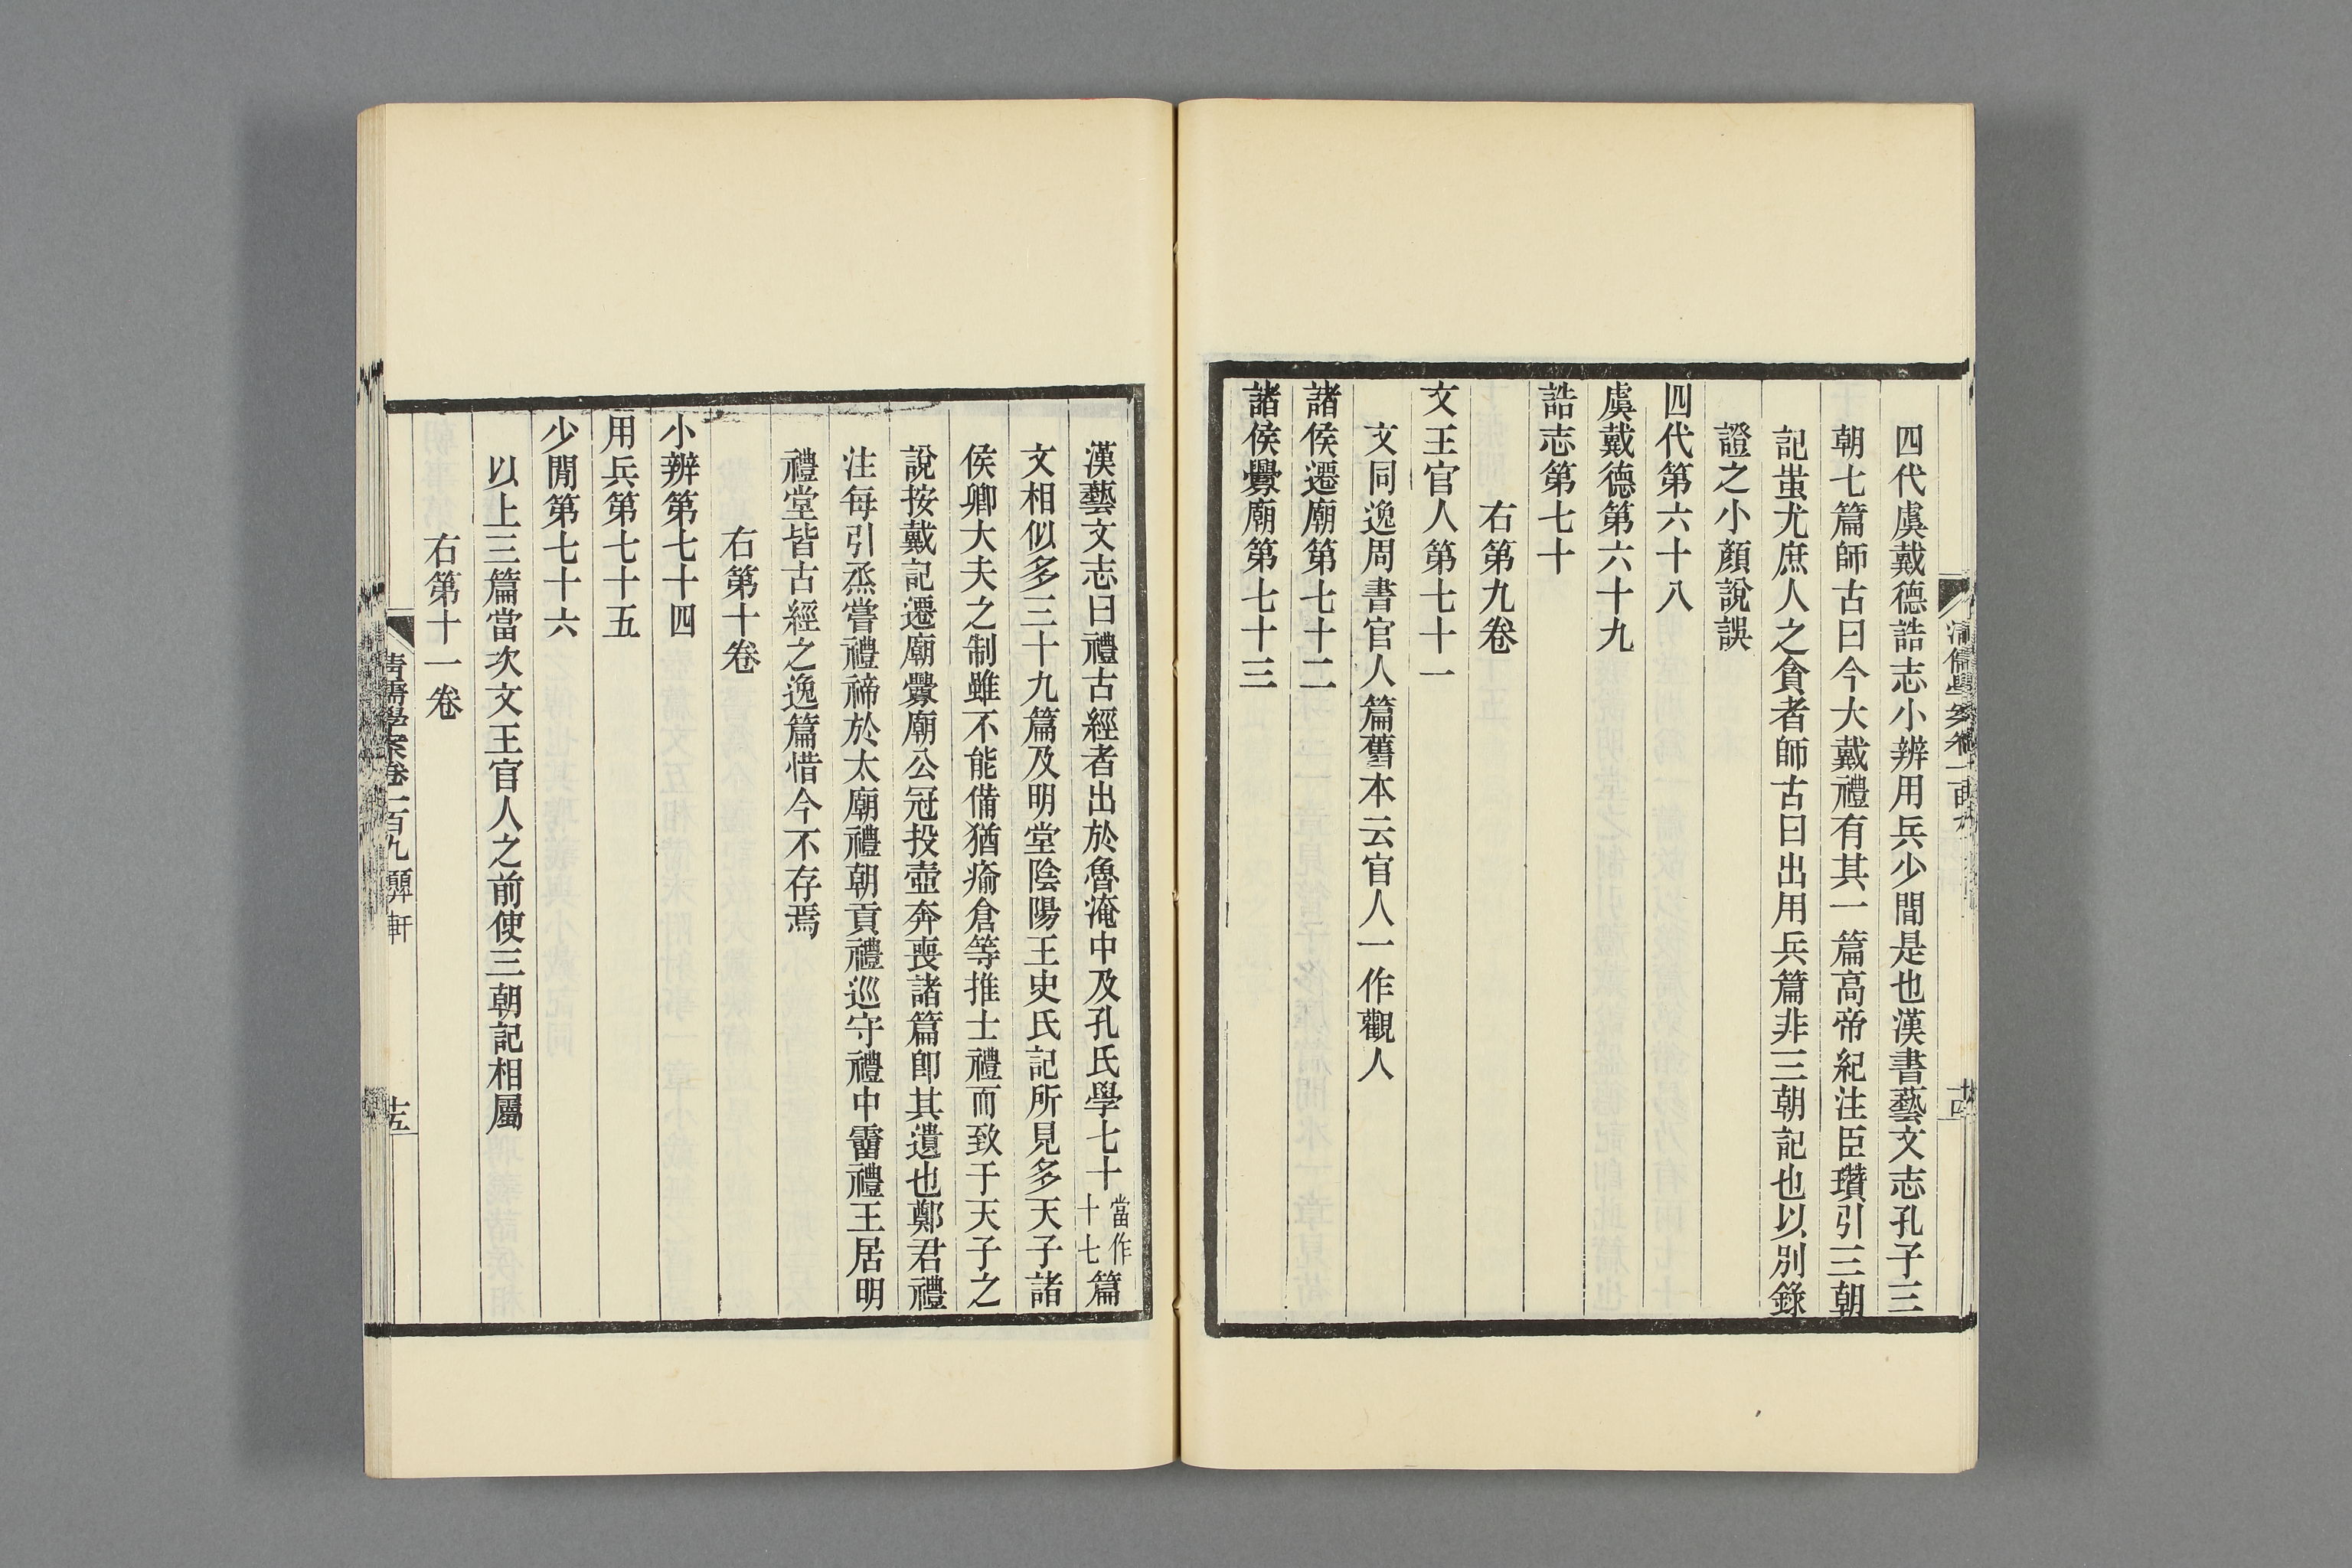 四代虞戴德誥志小辨用兵少閒是也漢書藝文志孔子三
朝七篇師古曰今大戴禮有其一篇高帝紀注臣瓚引三朝
記蚩尤庶人之貪者師古曰出用兵篇非三朝記也以別錄
證之小顏說誤
四代第六十八
虞戴德第六十九
誥志第七十
右第九卷
文王官人第七十一
文同逸周書官人篇舊本云官人一作觀人
諸侯遷廟第七十二
諸侯釁廟第七十三
漢藝文志曰禮古經者出於魯淹中及孔氏學七十當作十七篇
文相似多三十九篇及明堂陰陽王史氏記所見多天子諸
侯卿大夫之制雖不能備猶瘉倉等推士禮而致于天子之
說按戴記遷廟釁廟公冠投壺奔喪諸篇卽其遺也鄭君禮
注每引烝嘗禮禘於太廟禮朝貢禮巡守禮中霤禮王居明
禮堂皆古經之逸篇惜今不存焉
右第十卷
小辨第七十四
用兵第七十五
少閒第七十六
以上三篇當次文王官人之前使三朝記相屬
右第十一卷
清儒學案卷一百九 顨軒
十五